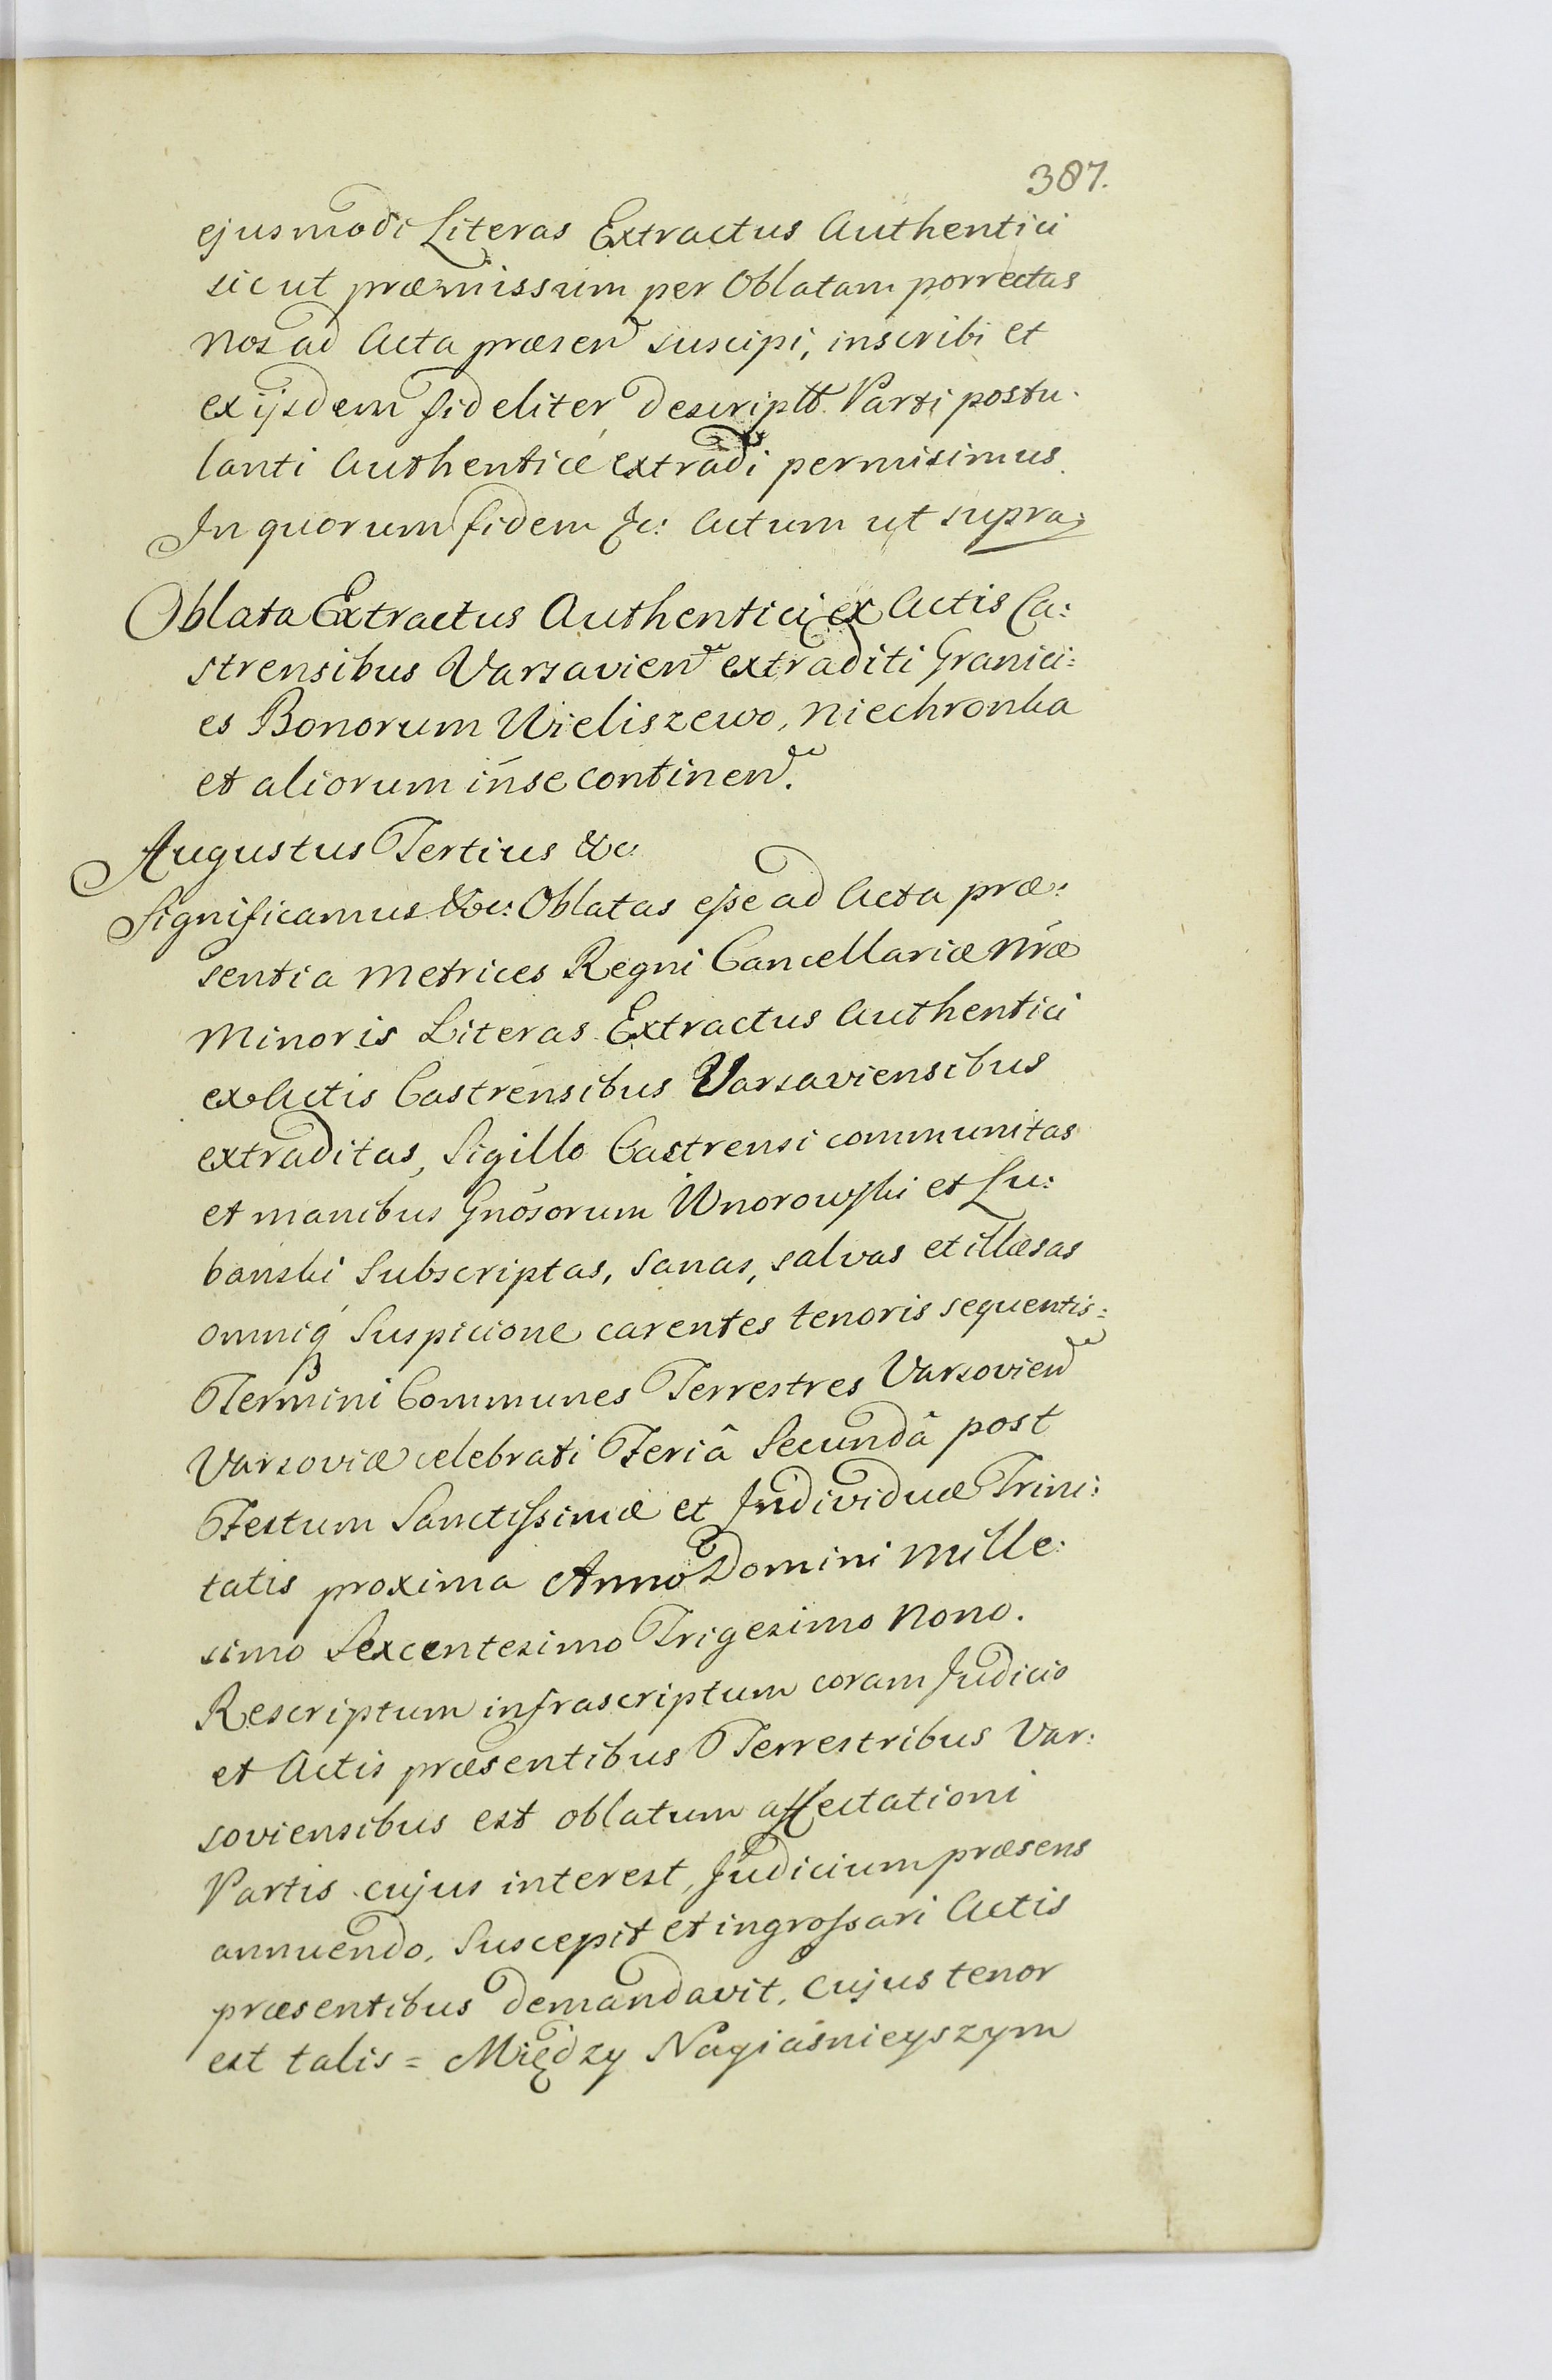 387.
ejusmodi Literas Extractus Authentici
sicut præmissum per Oblatam porrectas
Nos ad Acta præsen suscipi, inscribi et
ex ijsdem fideliter descriptt. Parti postu.
lanti Authenticè extradi permisimus.
In quorum fidem &c: Actum ut supra
Oblata Extractus Authentici ex Actis Ca:
strensibus Varsavien extraditi Granici:
es Bonorum Wieliszewo, Niechronka
et aliorum in se continen.
Augustus Tertius &c
Significamus &c: Oblatas esse ad Acta præ:
sentia Metrices Regni Cancellariæ Nræ
Minoris Literas Extractus Authentici
ex Actis Castrensibus Varsaviensibus
extraditas, Sigillo Castrensi communitas
et manibus Gnosorum Wnorowski et Lu:
banski Subscriptas, Sanas, salvas et illæsas
omniq́ Suspicione carentes tenoris sequentis:
Termini Communes Terrestres Varsovien
Varsoviæ celebrati Feriâ Secundâ post
Festum Sanctissimæ et Individuæ Trini:
tatis proxima Anno Domini Mille:
simo Sexcentesimo Trigesimo Nono.
Rescriptum infrascriptum coram Judicio
et Actis præsentibus Terrestribus Var:
soviensibus est oblatum affectationi
Partis cujus interest, Judicium præsens
annuendo, Suscepit et ingrossari Actis
præsentibus demandavit, cujus tenor
est talis = Między Nayiaśnieyszym